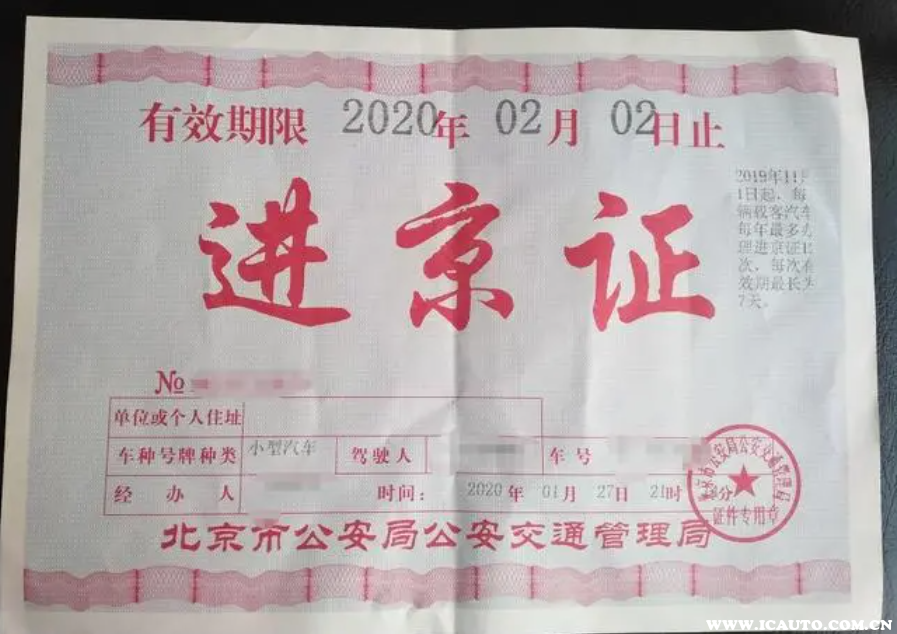 有效期限 2020年 02月 02日止
进京证
2019年11月
1日起，每
辆载客汽车
每年最多办
理进京证12
次，每次有
效期最长为
7天。
No
单位或个人住址
车种号牌种类 小型汽车 驾驶人 车号
经办人 时间： 2020年 01月 27日 21时 分
北京市公安局公安交通管理局
北京市公安局公安交通管理局
证件专用章
WWW.ICAUTO.COM.CN